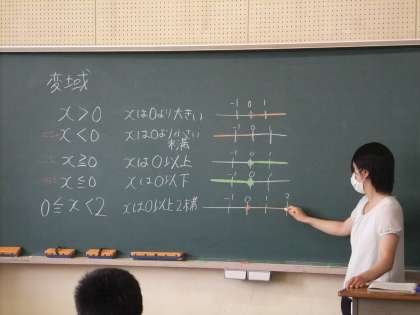 変域
x>0 xは0より大きい -1 0 1
x<0 xは0より小さい -1 0 1
未満
x≧0 xは0以上 -1 0 1
x≦0 xは0以下 -1 0 1
0≦x<2 xは0以上2未満 -1 0 1 2